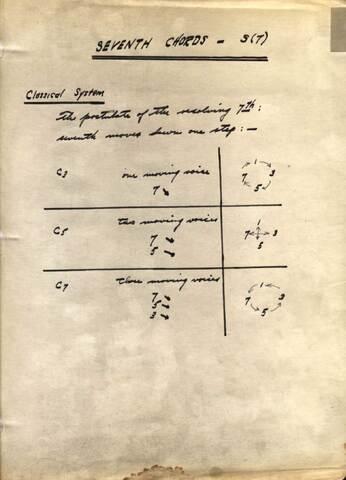 SEVENTH CHORDS – S(7)
Classical System
The postulate of the resolving 7th:
seventh moves down one step: —
C3 one moving voice
7 ↘
1
7 3
5
C5 two moving voices
7 ↘
5 ↘
1
7 3
5
C7 three moving voices
7 ↘
5 ↘
3 ↘
1
7 3
5